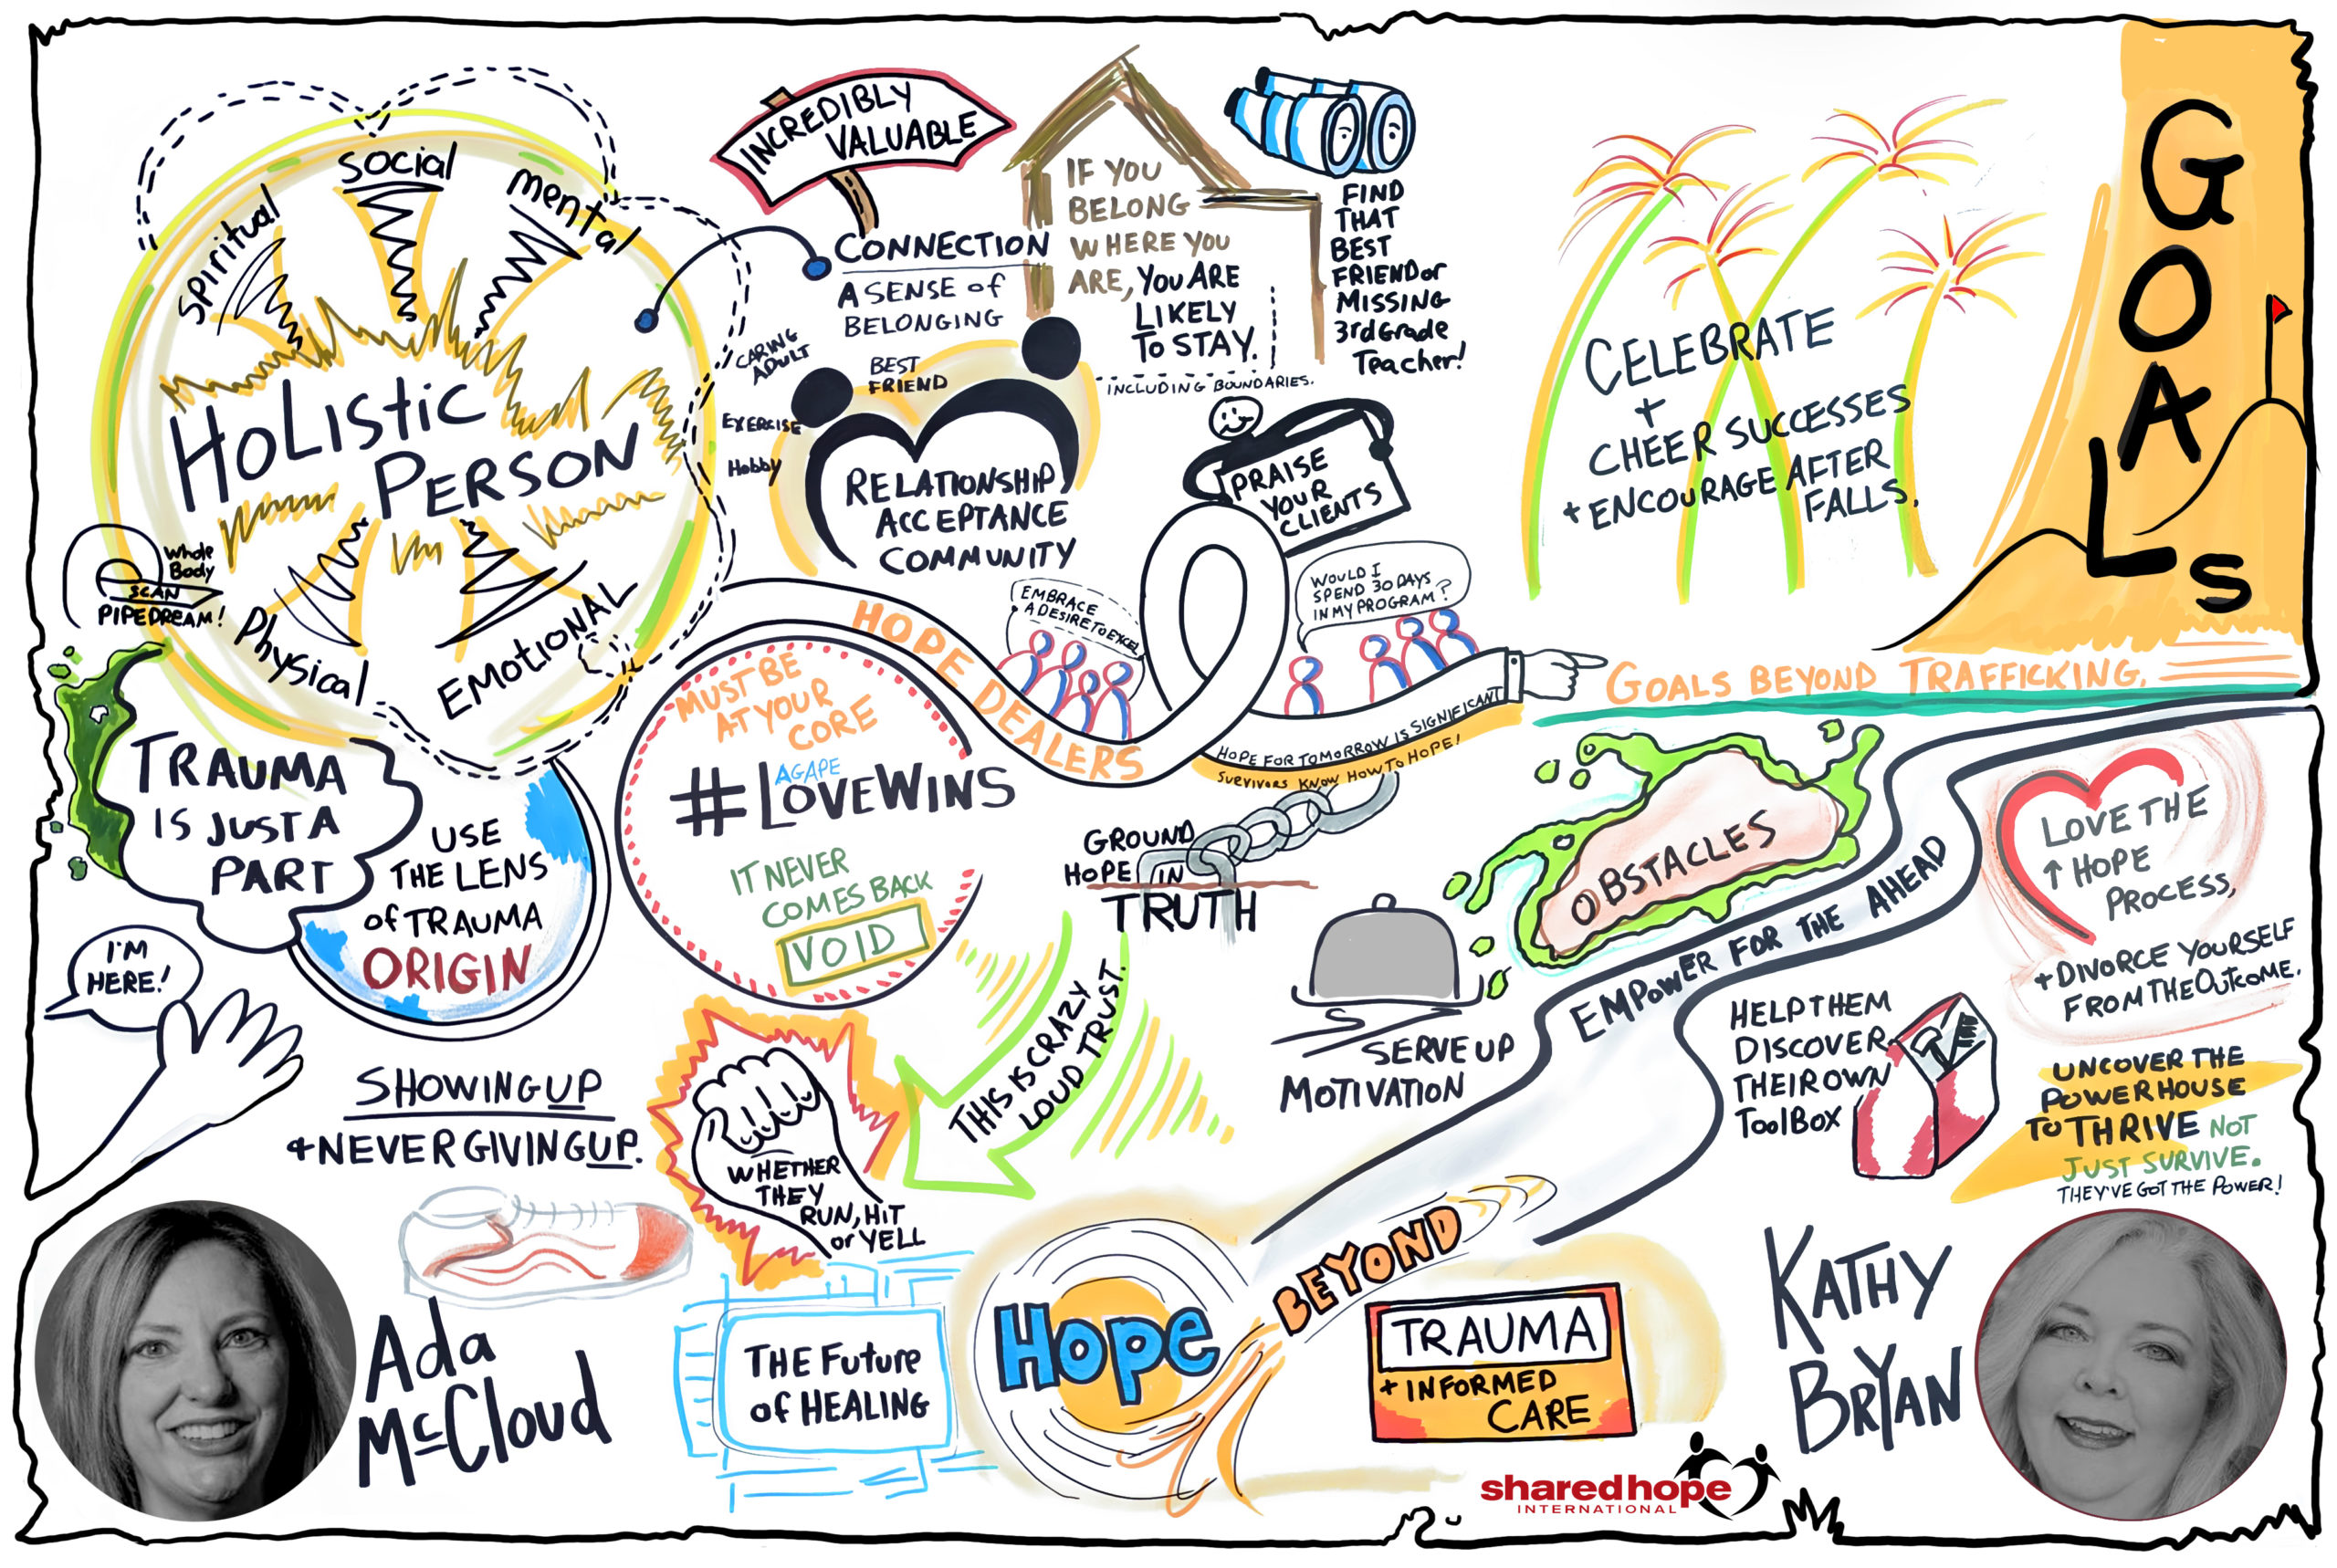 Spiritual
Social
Mental
HoListic
PERSON
Physical
EMOTIONAL
Whole
Body
SCAN
PIPEDREAM!
TRAUMA
IS JUST A
PART
USE
THE LENS
of TRAUMA
ORIGIN
I'M
HERE!
SHOWING UP
+ NEVER GIVING UP.
Ada
McCloud
INCREDIBLY
VALUABLE
CONNECTION
A SENSE of
BELONGING
CARING
ADULT
BEST
FRIEND
EXERCISE
Hobby
RELATIONSHIP
ACCEPTANCE
COMMUNITY
IF YOU
BELONG
WHERE YOU
ARE, YOU ARE
LIKELY
TO STAY.
INCLUDING BOUNDARIES.
FIND
THAT
BEST
FRIEND or
MISSING
3rd Grade
Teacher!
PRAISE
YOUR
CLIENTS
HOPE DEALERS
EMBRACE
A DESIRE TO EXCEL
WOULD I
SPEND 30 DAYS
IN MY PROGRAM?
HOPE FOR TOMORROW IS SIGNIFICANT
SURVIVORS KNOW HOW TO HOPE!
CELEBRATE
+
CHEER SUCCESSES
+ ENCOURAGE AFTER
FALLS.
GOALS
GOALS BEYOND TRAFFICKING.
MUST BE
AT YOUR
CORE
AGAPE
#LOVEWINS
IT NEVER
COMES BACK
VOID
GROUND
HOPE IN
TRUTH
THIS IS CRAZY
LOUD TRUST.
WHETHER
THEY
RUN, HIT
or YELL
SERVE UP
MOTIVATION
OBSTACLES
EMPOWER FOR THE AHEAD
LOVE THE
↑ HOPE
PROCESS,
+ DIVORCE YOURSELF
FROM THE OUTCOME.
HELP THEM
DISCOVER
THEIR OWN
ToolBox
UNCOVER THE
POWERHOUSE
TO THRIVE NOT
JUST SURVIVE.
THEY'VE GOT THE POWER!
THE Future
of HEALING
Hope
BEYOND
TRAUMA
+ INFORMED
CARE
KATHY
BRYAN
sharedhope
INTERNATIONAL